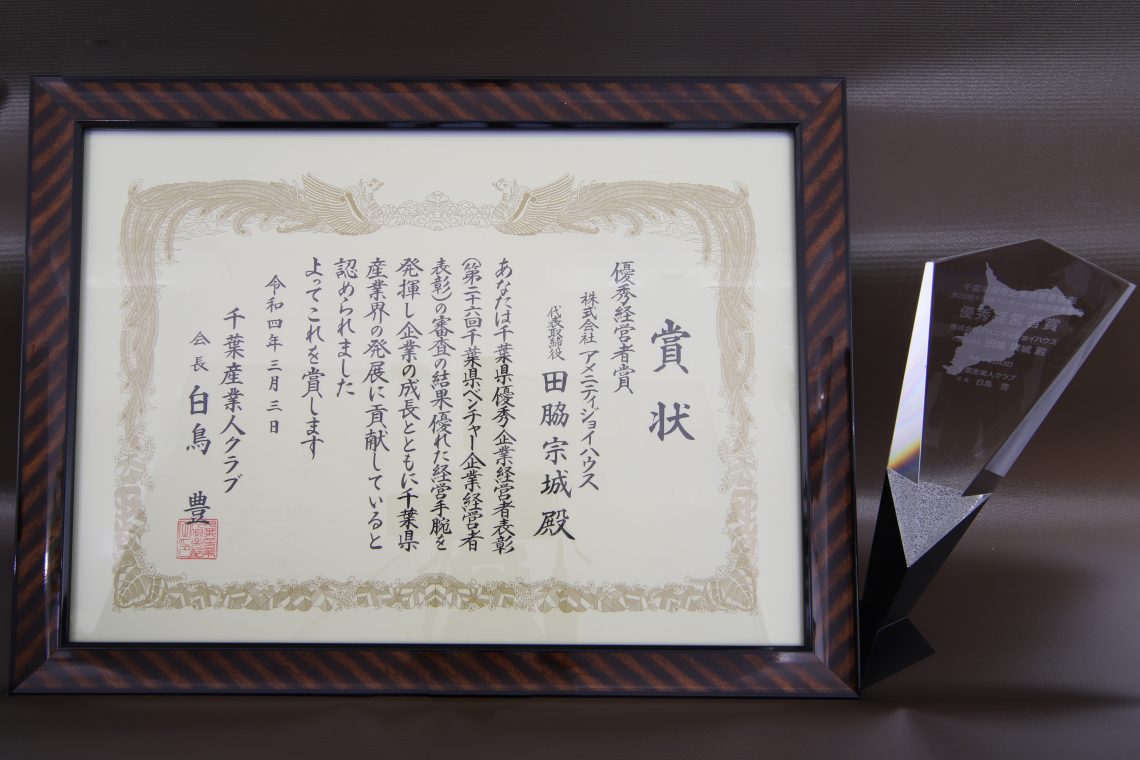 賞状
優秀経営者賞
株式会社 アメニティジョイハウス
代表取締役 田脇宗城 殿
あなたは千葉県優秀企業経営者表彰
(第二十六回千葉県ベンチャー企業経営者
表彰)の審査の結果優れた経営手腕を
発揮し企業の成長とともに千葉県
産業界の発展に貢献していると
認められました
よってこれを賞します
令和四年三月三日
千葉産業人クラブ
会長 白鳥 豊
優秀経営者賞